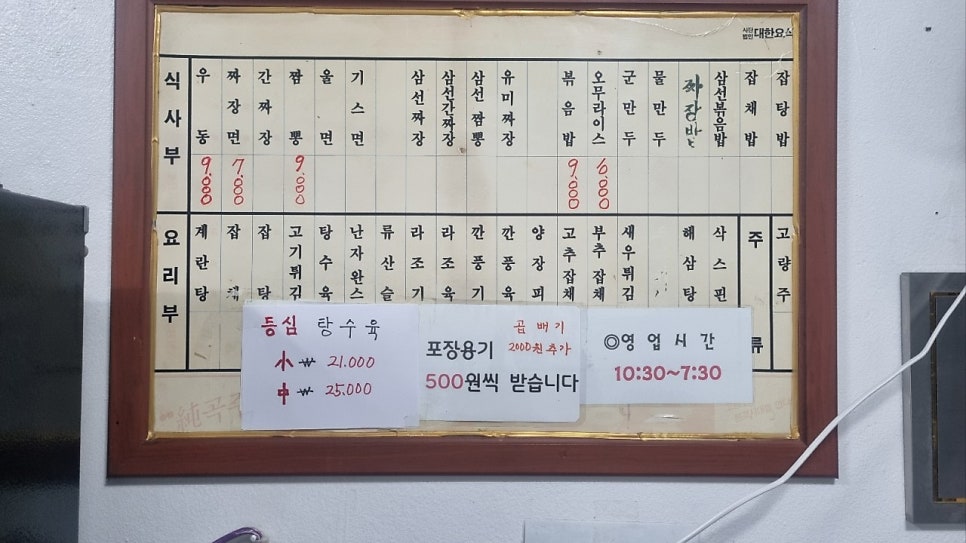 사단
법인 대한요식
식사부
우동 9.000
짜장면 7.000
간짜장
짬뽕 9.000
울면
기스면
삼선짜장
삼선간짜장
삼선짬뽕
유미짜장
볶음밥 9.000
오무라이스 6.000
군만두
물만두
짜장밥
삼선볶음밥
잡채밥
잡탕밥
요리부
계란탕
잡채
잡탕
고기튀김
탕수육
난자완스
류산슬
라조기
라조육
깐풍기
깐풍육
양장피
고추잡채
부추잡채
새우튀김
해삼탕
삭스핀
주류
고량주
등심 탕수육
小 ₩ 21.000
中 ₩ 25.000
곱배기
2000원 추가
포장용기
500원씩 받습니다
◎영업시간
10:30~7:30